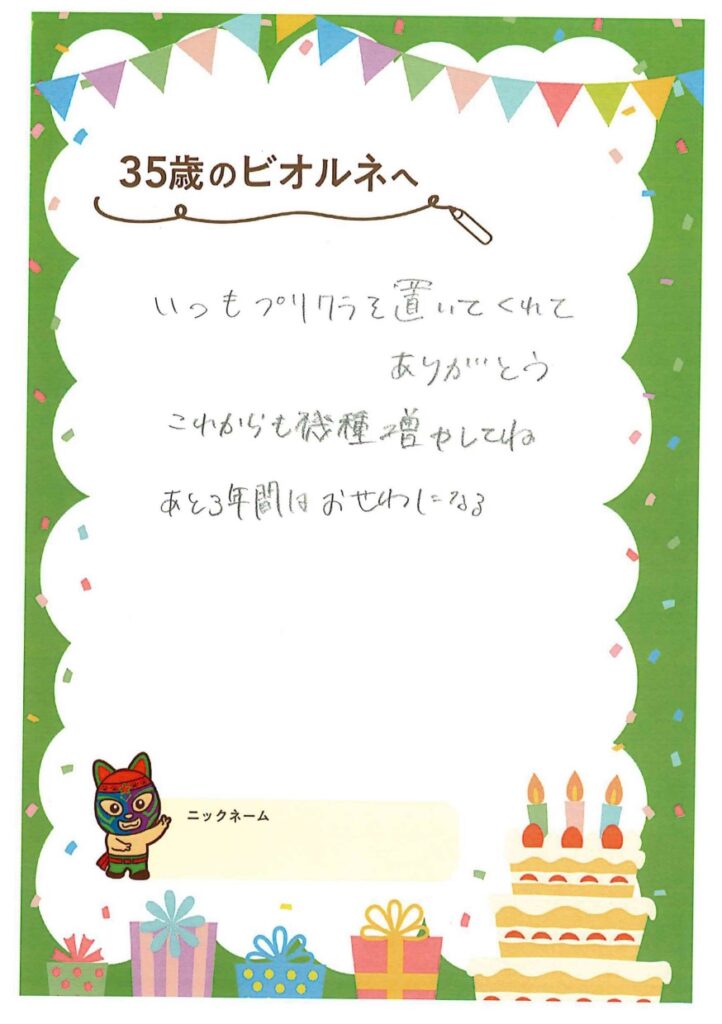 35歳のビオルネへ
いつもプリクラを置いてくれて
ありがとう
これからも機種増やしてね
あと3年間はおせわになる
ニックネーム